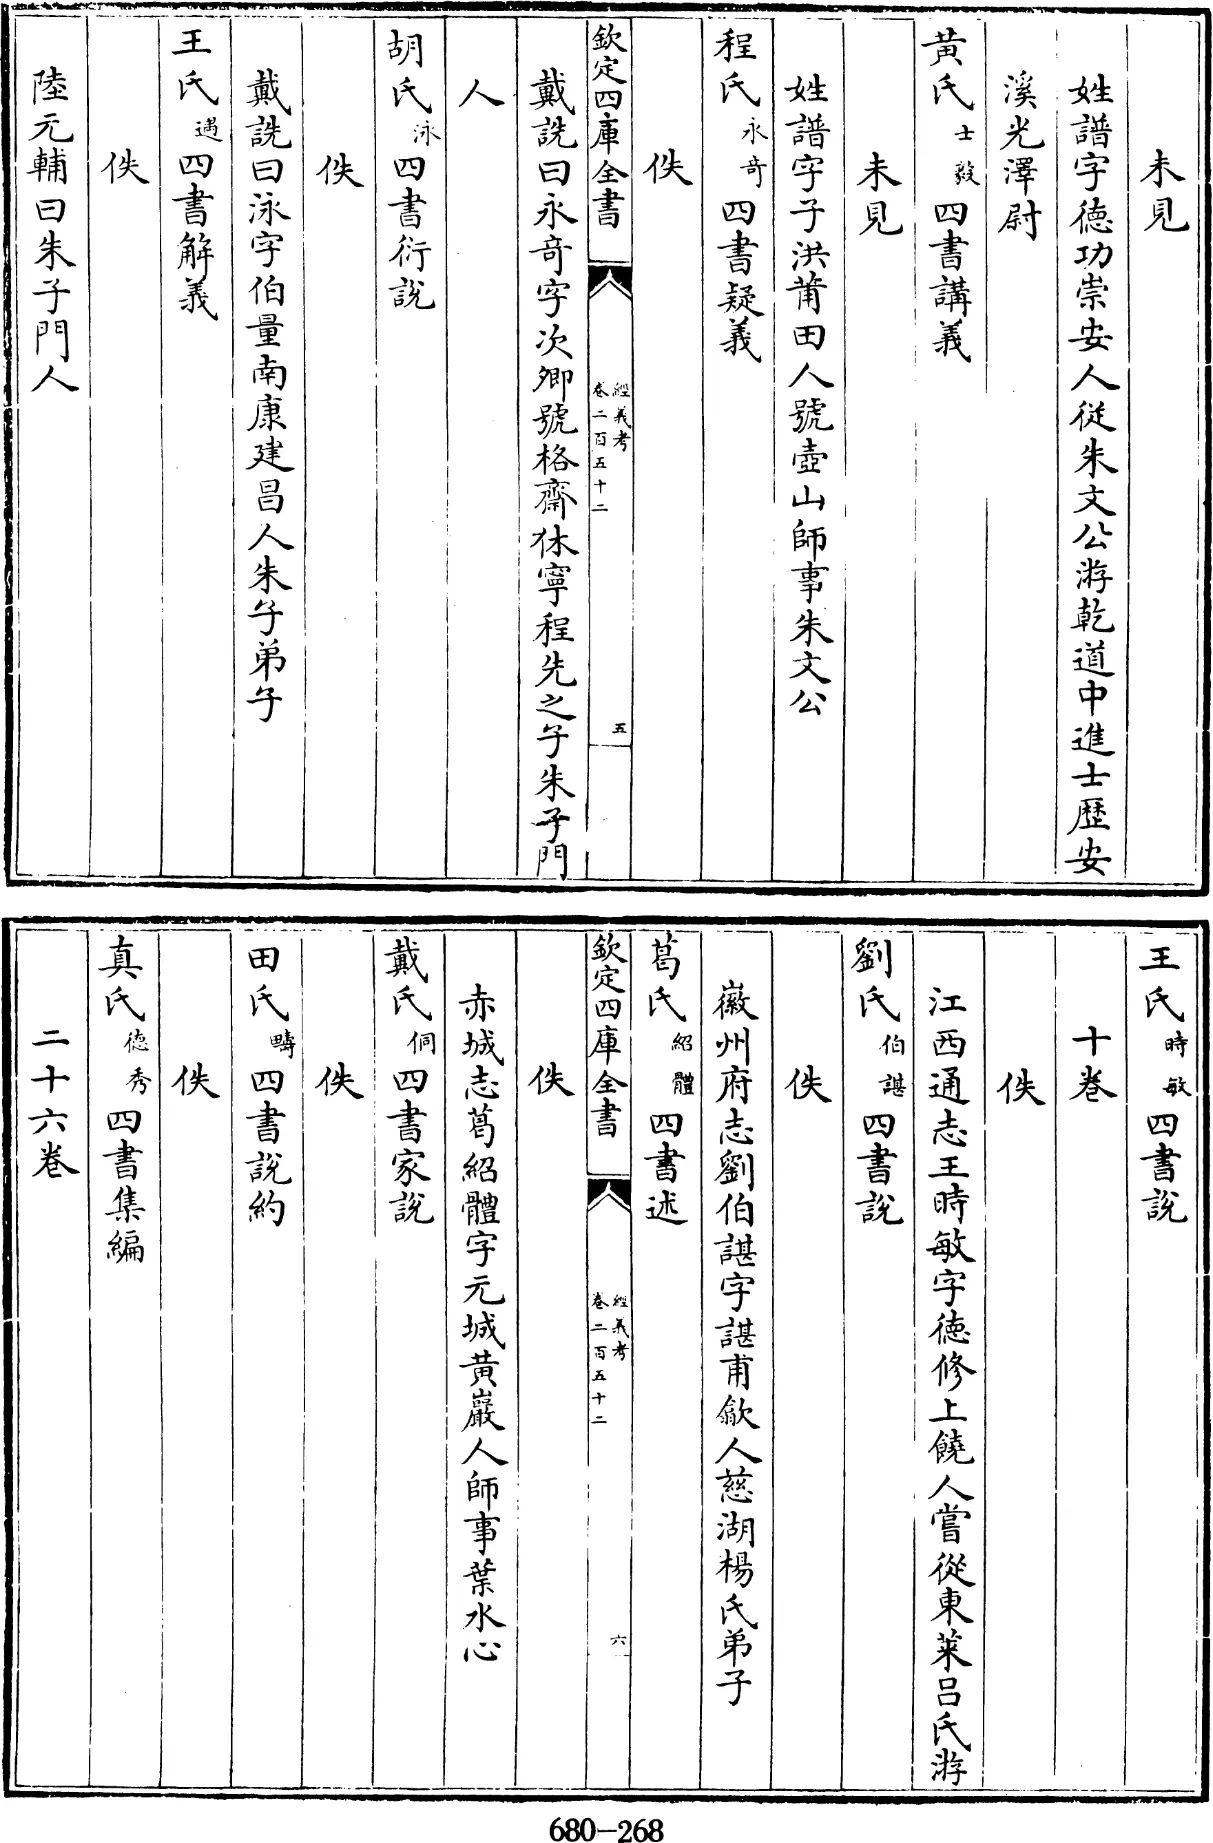 未見
姓譜字德功崇安人從朱文公游乾道中進士歷安
溪光澤尉
黃氏士毅四書講義
未見
姓譜字子洪莆田人號壺山師事朱文公
程氏永奇四書疑義
佚
欽定四庫全書 經義考卷二百五十二 五
戴詵曰永奇字次卿號格齋休寧程先之子朱子門
人
胡氏泳四書衍說
佚
戴詵曰泳字伯量南康建昌人朱子弟子
王氏遇四書解義
佚
陸元輔曰朱子門人
王氏時敏四書說
十卷
佚
江西通志王時敏字德修上饒人嘗從東萊呂氏游
劉氏伯諶四書說
佚
徽州府志劉伯諶字諶甫歙人慈湖楊氏弟子
葛氏紹體四書述
欽定四庫全書 經義考卷二百五十二 六
佚
赤城志葛紹體字元城黃巖人師事葉水心
戴氏侗四書家說
佚
田氏疇四書說約
佚
真氏德秀四書集編
二十六卷
680-268